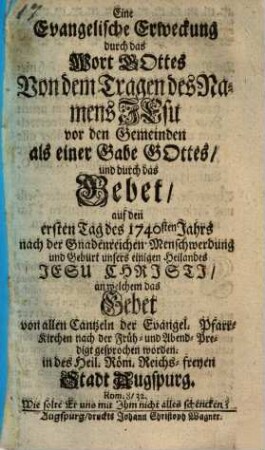 17
Eine
Evangelische Erweckung
durch das
Wort GOttes
Von dem Tragen des Na-
mens JEsu
vor den Gemeinden
als einer Gabe GOttes/
und durch das
Gebet/
auf den
ersten Tag des 1740sten Jahrs
nach der Gnadenreichen Menschwerdung
und Geburt unsers einigen Heilandes
JESU CHRISTI/
an welchem das
Gebet
von allen Cantzeln der Evangel. Pfarr-
Kirchen nach der Früh- und Abend- Pre-
digt gesprochen worden.
in des Heil. Röm. Reichs- freyen
Stadt Augspurg.
Röm. 8/32.
Wie solte Er uns mit Ihm nicht alles schencken?
Augspurg/ druckts Johann Christoph Wagner.